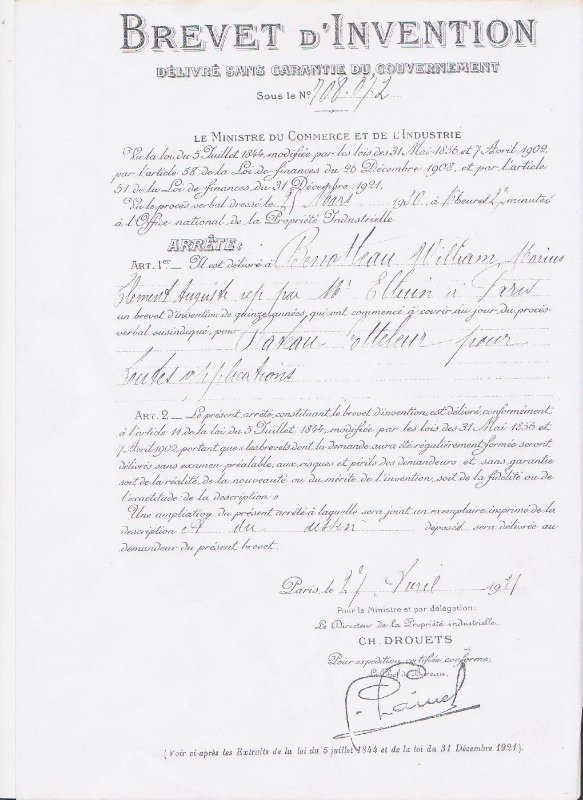 BREVET D'INVENTION
DÉLIVRÉ SANS GARANTIE DU GOUVERNEMENT
Sous le No 708.072
LE MINISTRE DU COMMERCE ET DE L'INDUSTRIE
Vu la loi du 5 Juillet 1844, modifiée par les lois des 31 Mai 1856, et 7 Avril 1902,
par l'article 58, de la Loi de finances du 26 Décembre 1908, et par l'article
51 de la Loi de finances du 31 Décembre 1921,
Vu le procès-verbal dressé le Mars 1930, à heures minutes
à l'Office national de la Propriété Industrielle
ARRÊTE:
ART. 1er_ Il est délivré à William, Marius
Clément Auguste rep par Mr Elluin à Paris
un brevet d'invention de quinze années, qui ont commencé à courir au jour du procès-
verbal susindiqué, pour pour
toutes applications
ART. 2_ Le présent arrêté, constituant le brevet d'invention, est délivré, conformément
à l'article 11 de la loi du 5 Juillet 1844, modifiée par les lois des 31 Mai 1856 et
7 Avril 1902, portant que «les brevets dont la demande aura été régulièrement formée seront
délivrés sans examen préalable, aux risques et périls des demandeurs et sans garantie
soit de la réalité, de la nouveauté ou du mérite de l'invention, soit de la fidélité ou de
l'exactitude de la description.»
Une ampliation du présent arrêté à laquelle sera joint un exemplaire, imprimé de la
description et du dessin déposés sera délivrée au
demandeur du présent brevet.
Paris, le 27 Avril 1931
Pour le Ministre et par délégation:
Le Directeur de la Propriété industrielle.
CH. DROUETS
Pour expédition certifiée conforme.
Le Chef de Bureau.
(Voir ci-après les Extraits de la loi du 5 juillet 1844 et de la loi du 31 Décembre 1921).